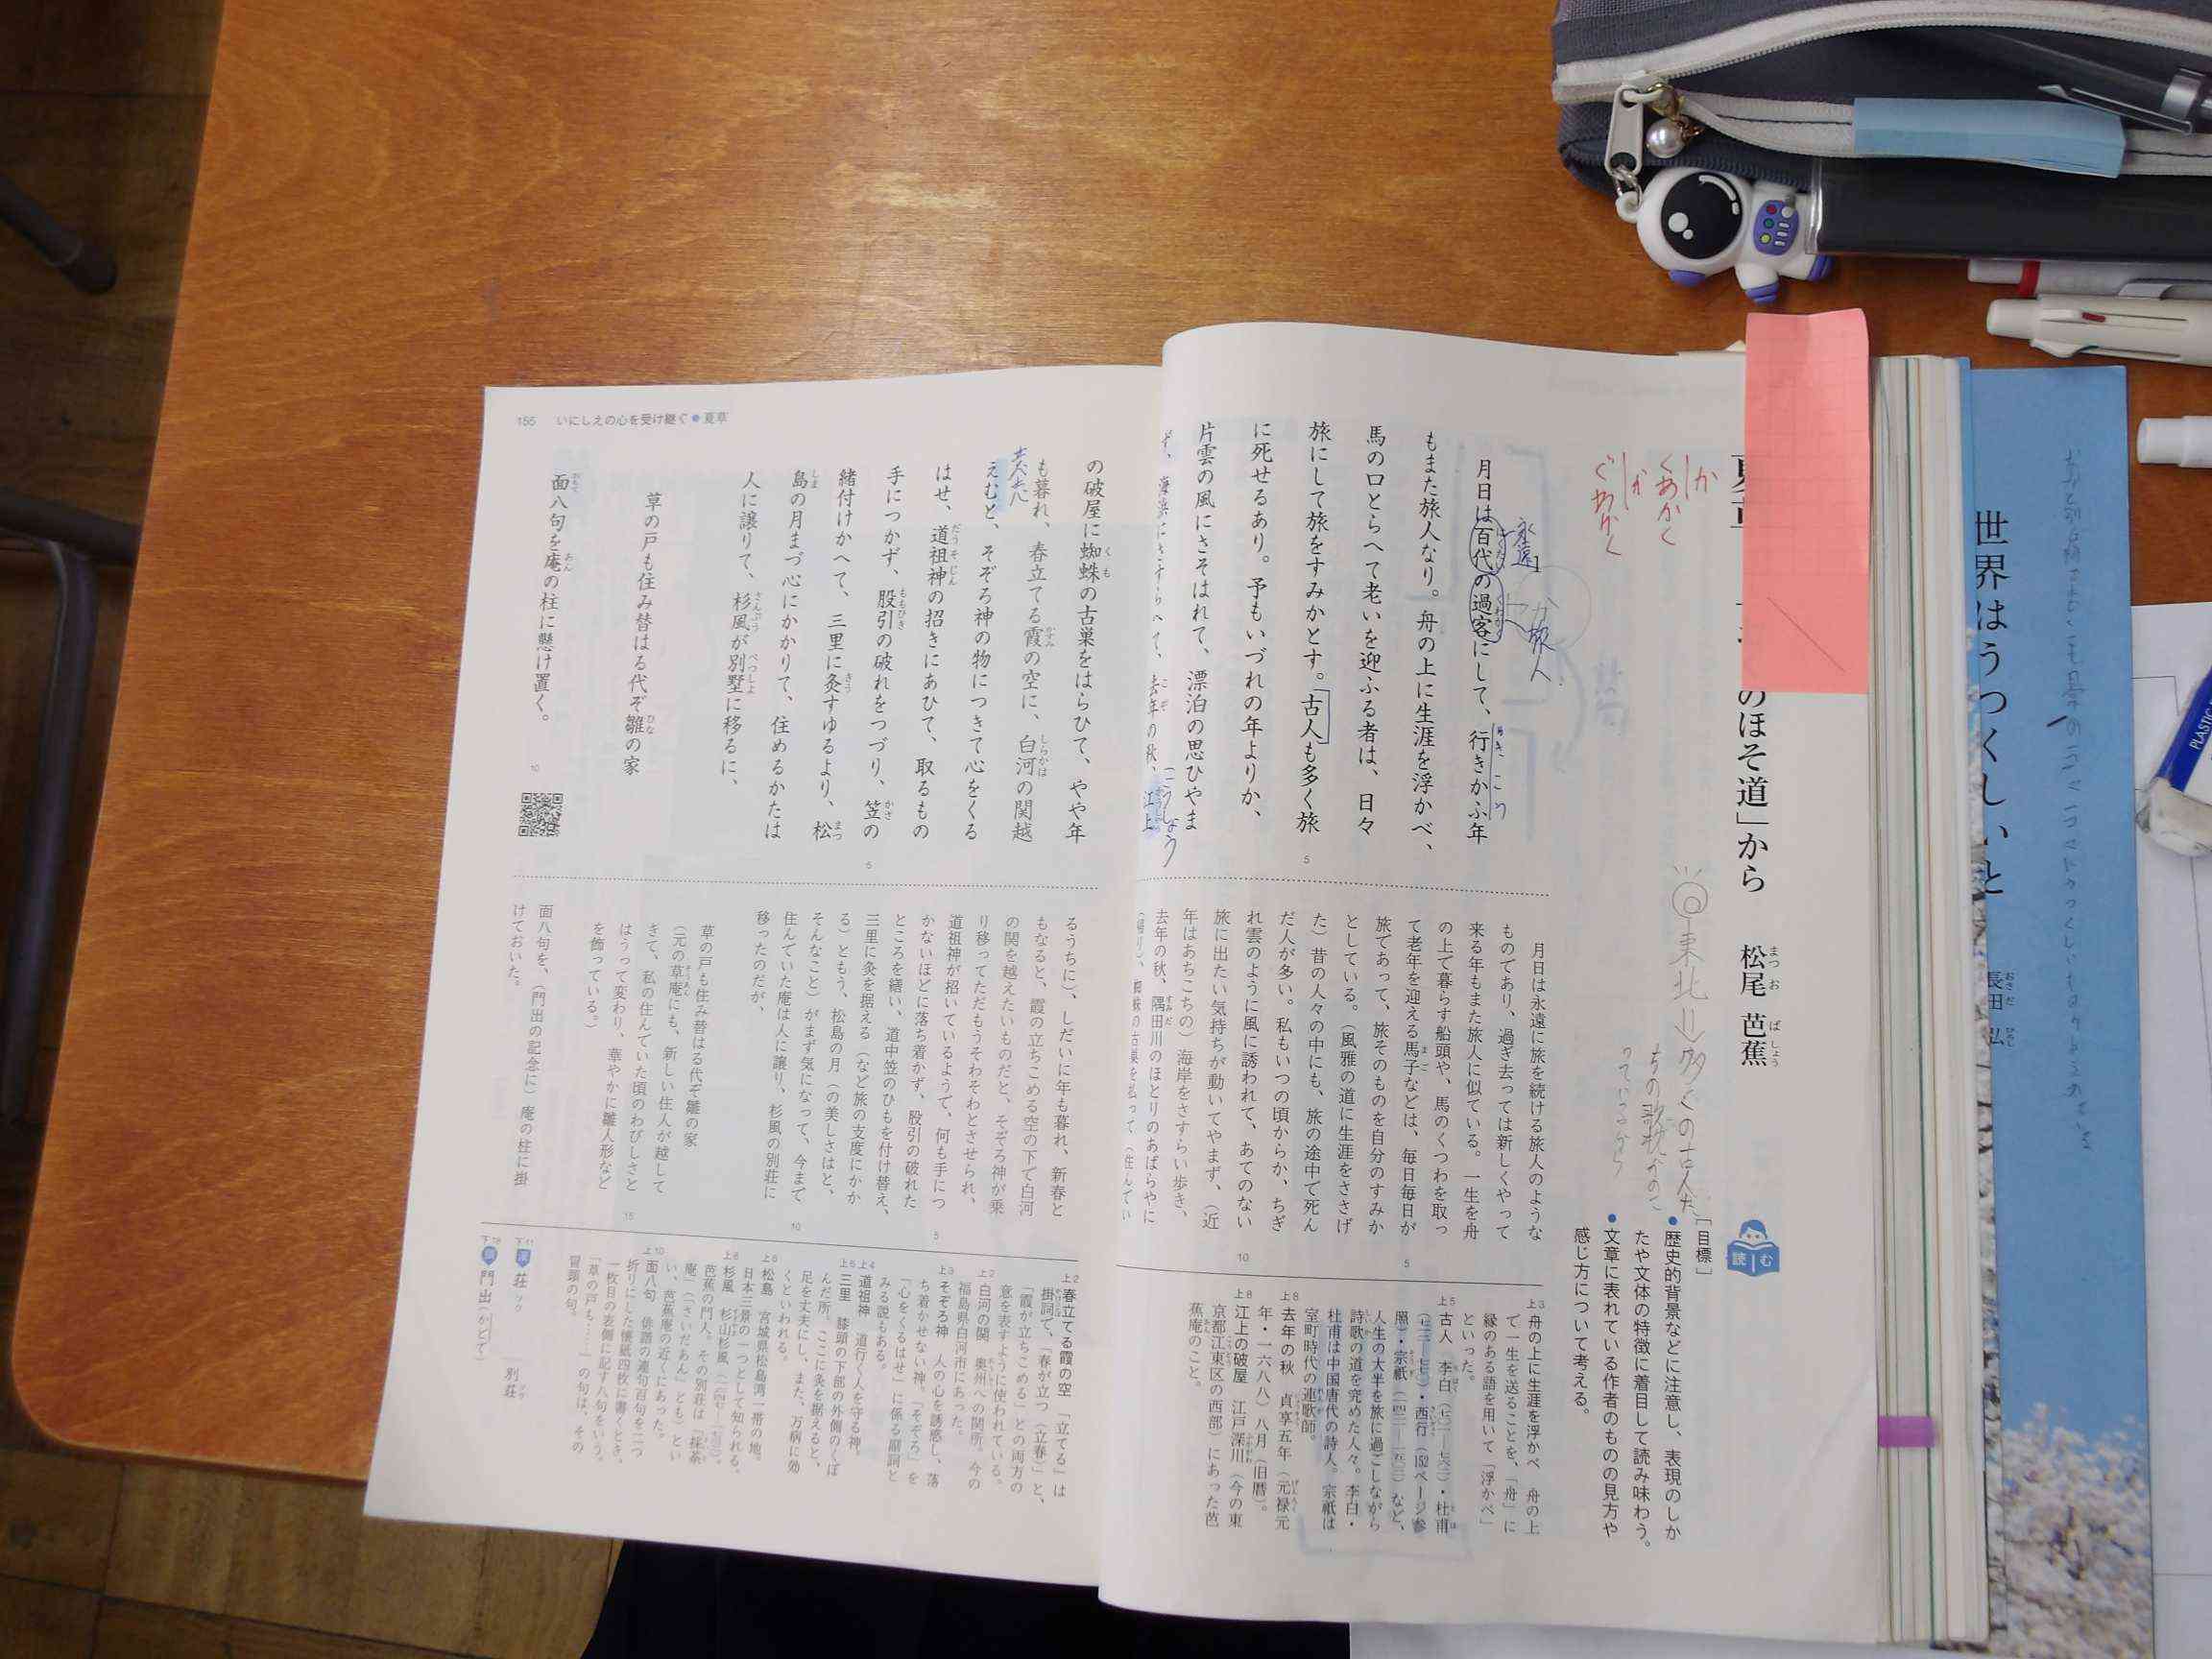 のほそ道」から
松尾 芭蕉
まつ お ばしょう
読む
[目標]
●歴史的背景などに注意し、表現のしか
たや文体の特徴に着目して読み味わう。
●文章に表れている作者のものの見方や
感じ方について考える。
か
くあかく
が
ぐわかく
東北⇒多くの古人た
ちの歌枕がのこ
っているから
永遠
旅人
月日は百代の過客にして、行きかふ年
もまた旅人なり。舟の上に生涯を浮かべ、
馬の口とらへて老いを迎ふる者は、日々
旅にして旅をすみかとす。古人も多く旅
に死せるあり。予もいづれの年よりか、
片雲の風にさそはれて、漂泊の思ひやま
ず、海浜にさすらへて、去年の秋、江上
こうしょう
5
月日は永遠に旅を続ける旅人のような
ものであり、過ぎ去っては新しくやって
来る年もまた旅人に似ている。一生を舟
の上で暮らす船頭や、馬のくつわを取っ
て老年を迎える馬子などは、毎日毎日が
旅であって、旅そのものを自分のすみか
としている。(風雅の道に生涯をささげ
た)昔の人々の中にも、旅の途中で死ん
だ人が多い。私もいつの頃からか、ちぎ
れ雲のように風に誘われて、あてのない
旅に出たい気持ちが動いてやまず、(近
年はあちこちの)海岸をさすらい歩き、
去年の秋、隅田川のほとりのあばらやに
(帰り)、蜘蛛の古巣を払って(住んでい
5
10
上3 舟の上に生涯を浮かべ 舟の上
で一生を送ることを、「舟」に
縁のある語を用いて「浮かべ」
といった。
上5 古人 李白・杜甫
・西行(152ページ参
照)・宗祇など、
人生の大半を旅に過ごしながら
詩歌の道を究めた人々。李白・
杜甫は中国唐代の詩人。宗祇は
室町時代の連歌師。
上8 去年の秋 貞享五年(元禄元
年・一六八八)八月(旧暦)。
上8 江上の破屋 江戸深川(今の東
京都江東区の西部)にあった芭
蕉庵のこと。
155 いにしえの心を受け継ぐ●夏草
の破屋に蜘蛛の古巣をはらひて、やや年
も暮れ、春立てる霞の空に、白河の関越
えむと、そぞろ神の物につきて心をくる
はせ、道祖神の招きにあひて、取るもの
手につかず、股引の破れをつづり、笠の
緒付けかへて、三里に灸すゆるより、松
島の月まづ心にかかりて、住めるかたは
人に譲りて、杉風が別墅に移るに、
草の戸も住み替はる代ぞ雛の家
面八句を庵の柱に懸け置く。
5
10
るうちに)、しだいに年も暮れ、新春と
もなると、霞の立ちこめる空の下で白河
の関を越えたいものだと、そぞろ神が乗
り移ってただもうそわそわとさせられ、
道祖神が招いているようで、何も手につ
かないほどに落ち着かず、股引の破れた
ところを繕い、道中笠のひもを付け替え、
三里に灸を据える(など旅の支度にかか
る)ともう、松島の月(の美しさはと、
そんなこと)がまず気になって、今まで
住んでいた庵は人に譲り、杉風の別荘に
移ったのだが、
草の戸も住み替はる代ぞ雛の家
(元の草庵にも、新しい住人が越して
きて、私の住んでいた頃のわびしさと
はうって変わり、華やかに雛人形など
を飾っている。)
面八句を、(門出の記念に)庵の柱に掛
けておいた。
5
10
15
上2 春立てる霞の空 「立てる」は
掛詞で、「春が立つ(立春)」と、
「霞が立ちこめる」との両方の
意を表すように使われている。
上2 白河の関 奥州への関所。今の
福島県白河市にあった。
上3 そぞろ神 人の心を誘惑し、落
ち着かせない神。「そぞろ」を
「心をくるはせ」に係る副詞と
みる説もある。
上4 道祖神 道行く人を守る神。
上6 三里 膝頭の下部の外側のくぼ
んだ所。ここに灸を据えると、
足を丈夫にし、また、万病に効
くといわれる。
上6 松島 宮城県松島湾一帯の地。
日本三景の一つとして知られる。
上8 杉風 杉山杉風
芭蕉の門人。その別荘は「採荼
庵」(「さいだあん」とも)とい
い、芭蕉庵の近くにあった。
上10 面八句 俳諧の連句百句を二つ
折りにした懐紙四枚に書くとき、
一枚目の表側に記す八句をいう。
「草の戸も……」の句は、その
冒頭の句。
下11 漢 荘 別荘
下18 訓 門出(かどで)
世界はうつくしいと
長田 弘
おさだ ひろし
PLASTIC